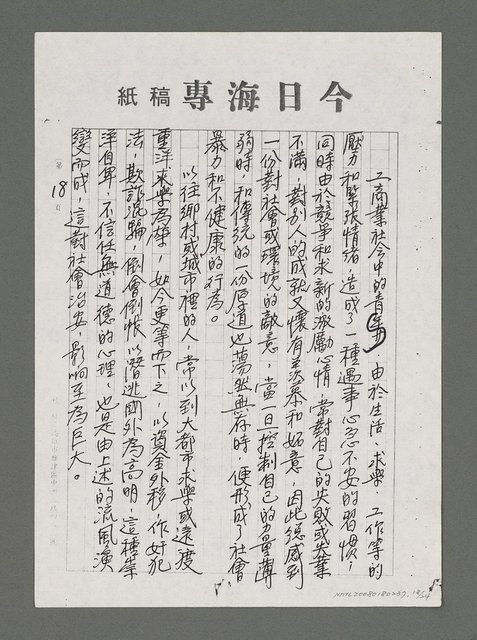 今日海專 稿紙
工商業社會中的青年,由於生活、求學、工作等的
壓力和緊張情緒,造成了一種遇事心忍不安的習慣,
同時由於競爭和求新的激勵心情,常對自己的失敗或失業
不滿,對別人的成就又懷有羨慕和妬意,因此總感到
一份對社會或環境的敵意,當一旦控制自己的力量薄
弱時,和傳統的一份厚道也蕩然無存時,便形成了社會
暴力和不健康的行為。
以往鄉村或城市裡的人,常以到大都市求學或遠度
重洋求學為榮,如今更等而下之,以資金外移,作奸犯
法,欺詐混騙,倒會倒帳以潛逃國外為高明,這種崇
洋自卑,不信任無道德的心理,也是由上述的流風演
變而成,這對社會治安,影响至為巨大。
第18頁
NMTL20080180257, 18/24